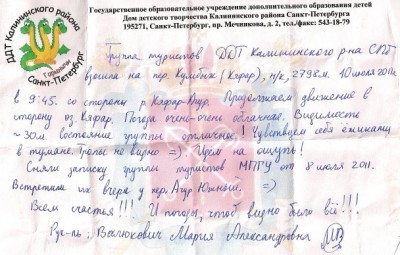 Государственное образовательное учреждение дополнительного образования детей
Дом детского творчества Калининского района Санкт-Петербурга
195271, Санкт-Петербург, пр. Мечникова, д. 2, тел./факс: 543-18-79
ДДТ Калининского района
Санкт-Петербург
Группа туристов ДДТ Калининского р-на СПб
взошла на пер. Кулибна (Кяфар), н/к, 2798м. 10 июля 2011г.
в 9:45. со стороны р. Кяфар-Агур. Продолжаем движение в
сторону оз. Кяфар. Погода очень-очень облачная. Видимость
~ 30м. Состояние группы отличное! Чувствуем себя ёжиками
в тумане. Тропы не видно =) Идём на ощупь!
Сняли записку группы туристов МПГУ от 8 июля 2011.
Встретили их вчера у пер. Агур Южный. =)
Всем счастья!!! И погоды, чтоб видно было всё!!!
Рук-ль: Мария Александровна